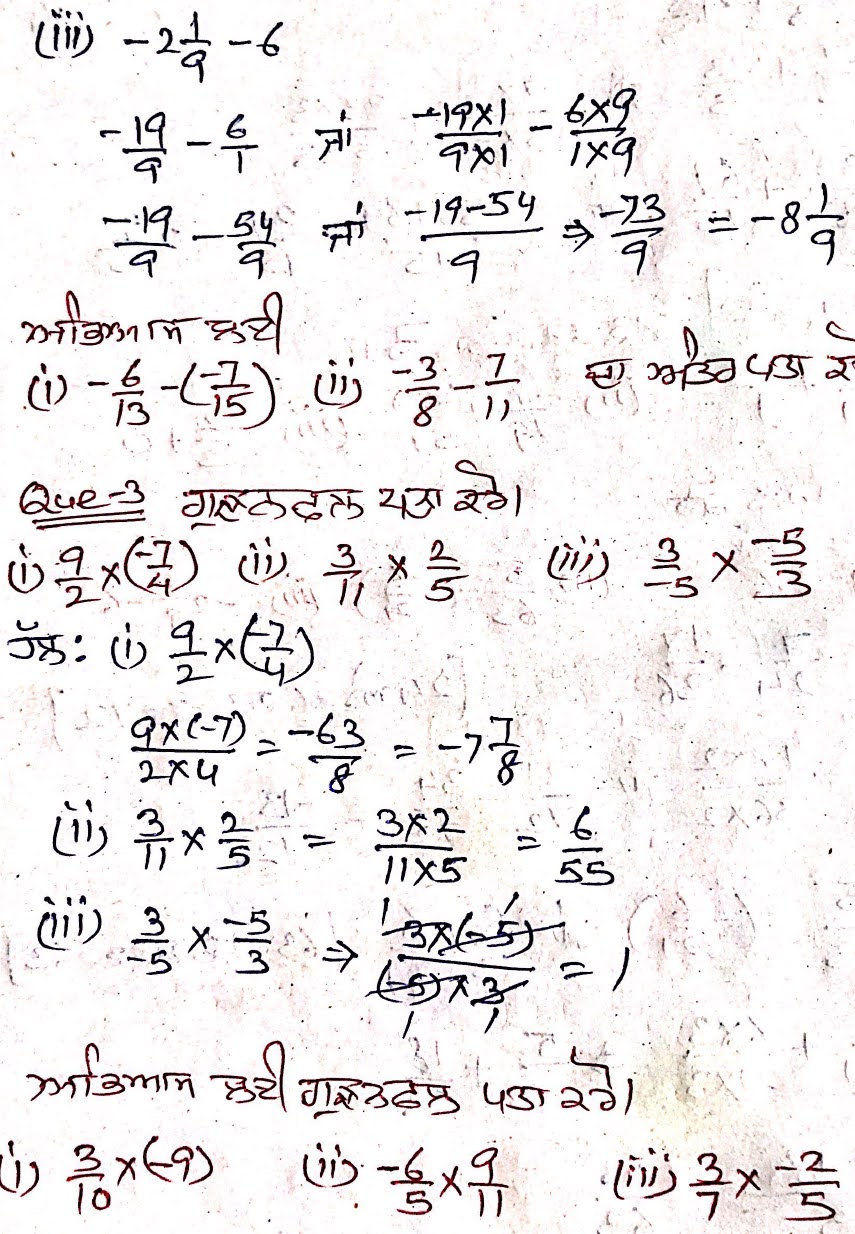 (iii) -2 1/9 - 6
-19/9 - 6/1 ਜਾਂ -19×1/9×1 - 6×9/1×9
-19/9 - 54/9 ਜਾਂ -19-54/9 ⇒ -73/9 = -8 1/9
ਅਭਿਆਸ ਲਈ
(i) -6/13 - (-7/15) (ii) -3/8 - 7/11 ਦਾ ਅੰਤਰ ਪਤਾ
Que-3 ਗੁਣਨਫਲ ਪਤਾ ਕਰੋ।
(i) 9/2 × (-7/4) (ii) 3/11 × 2/5 (iii) 3/-5 × -5/3
ਹੱਲ: (i) 9/2 × (-7/4)
9×(-7)/2×4 = -63/8 = -7 7/8
(ii) 3/11 × 2/5 = 3×2/11×5 = 6/55
(iii) 3/-5 × -5/3 ⇒ 3×(-5)/(-5)×3 = 1
ਅਭਿਆਸ ਲਈ ਗੁਣਨਫਲ ਪਤਾ ਕਰੋ।
(i) 3/10 × (-9) (ii) -6/5 × 9/11 (iii) 3/7 × -2/5